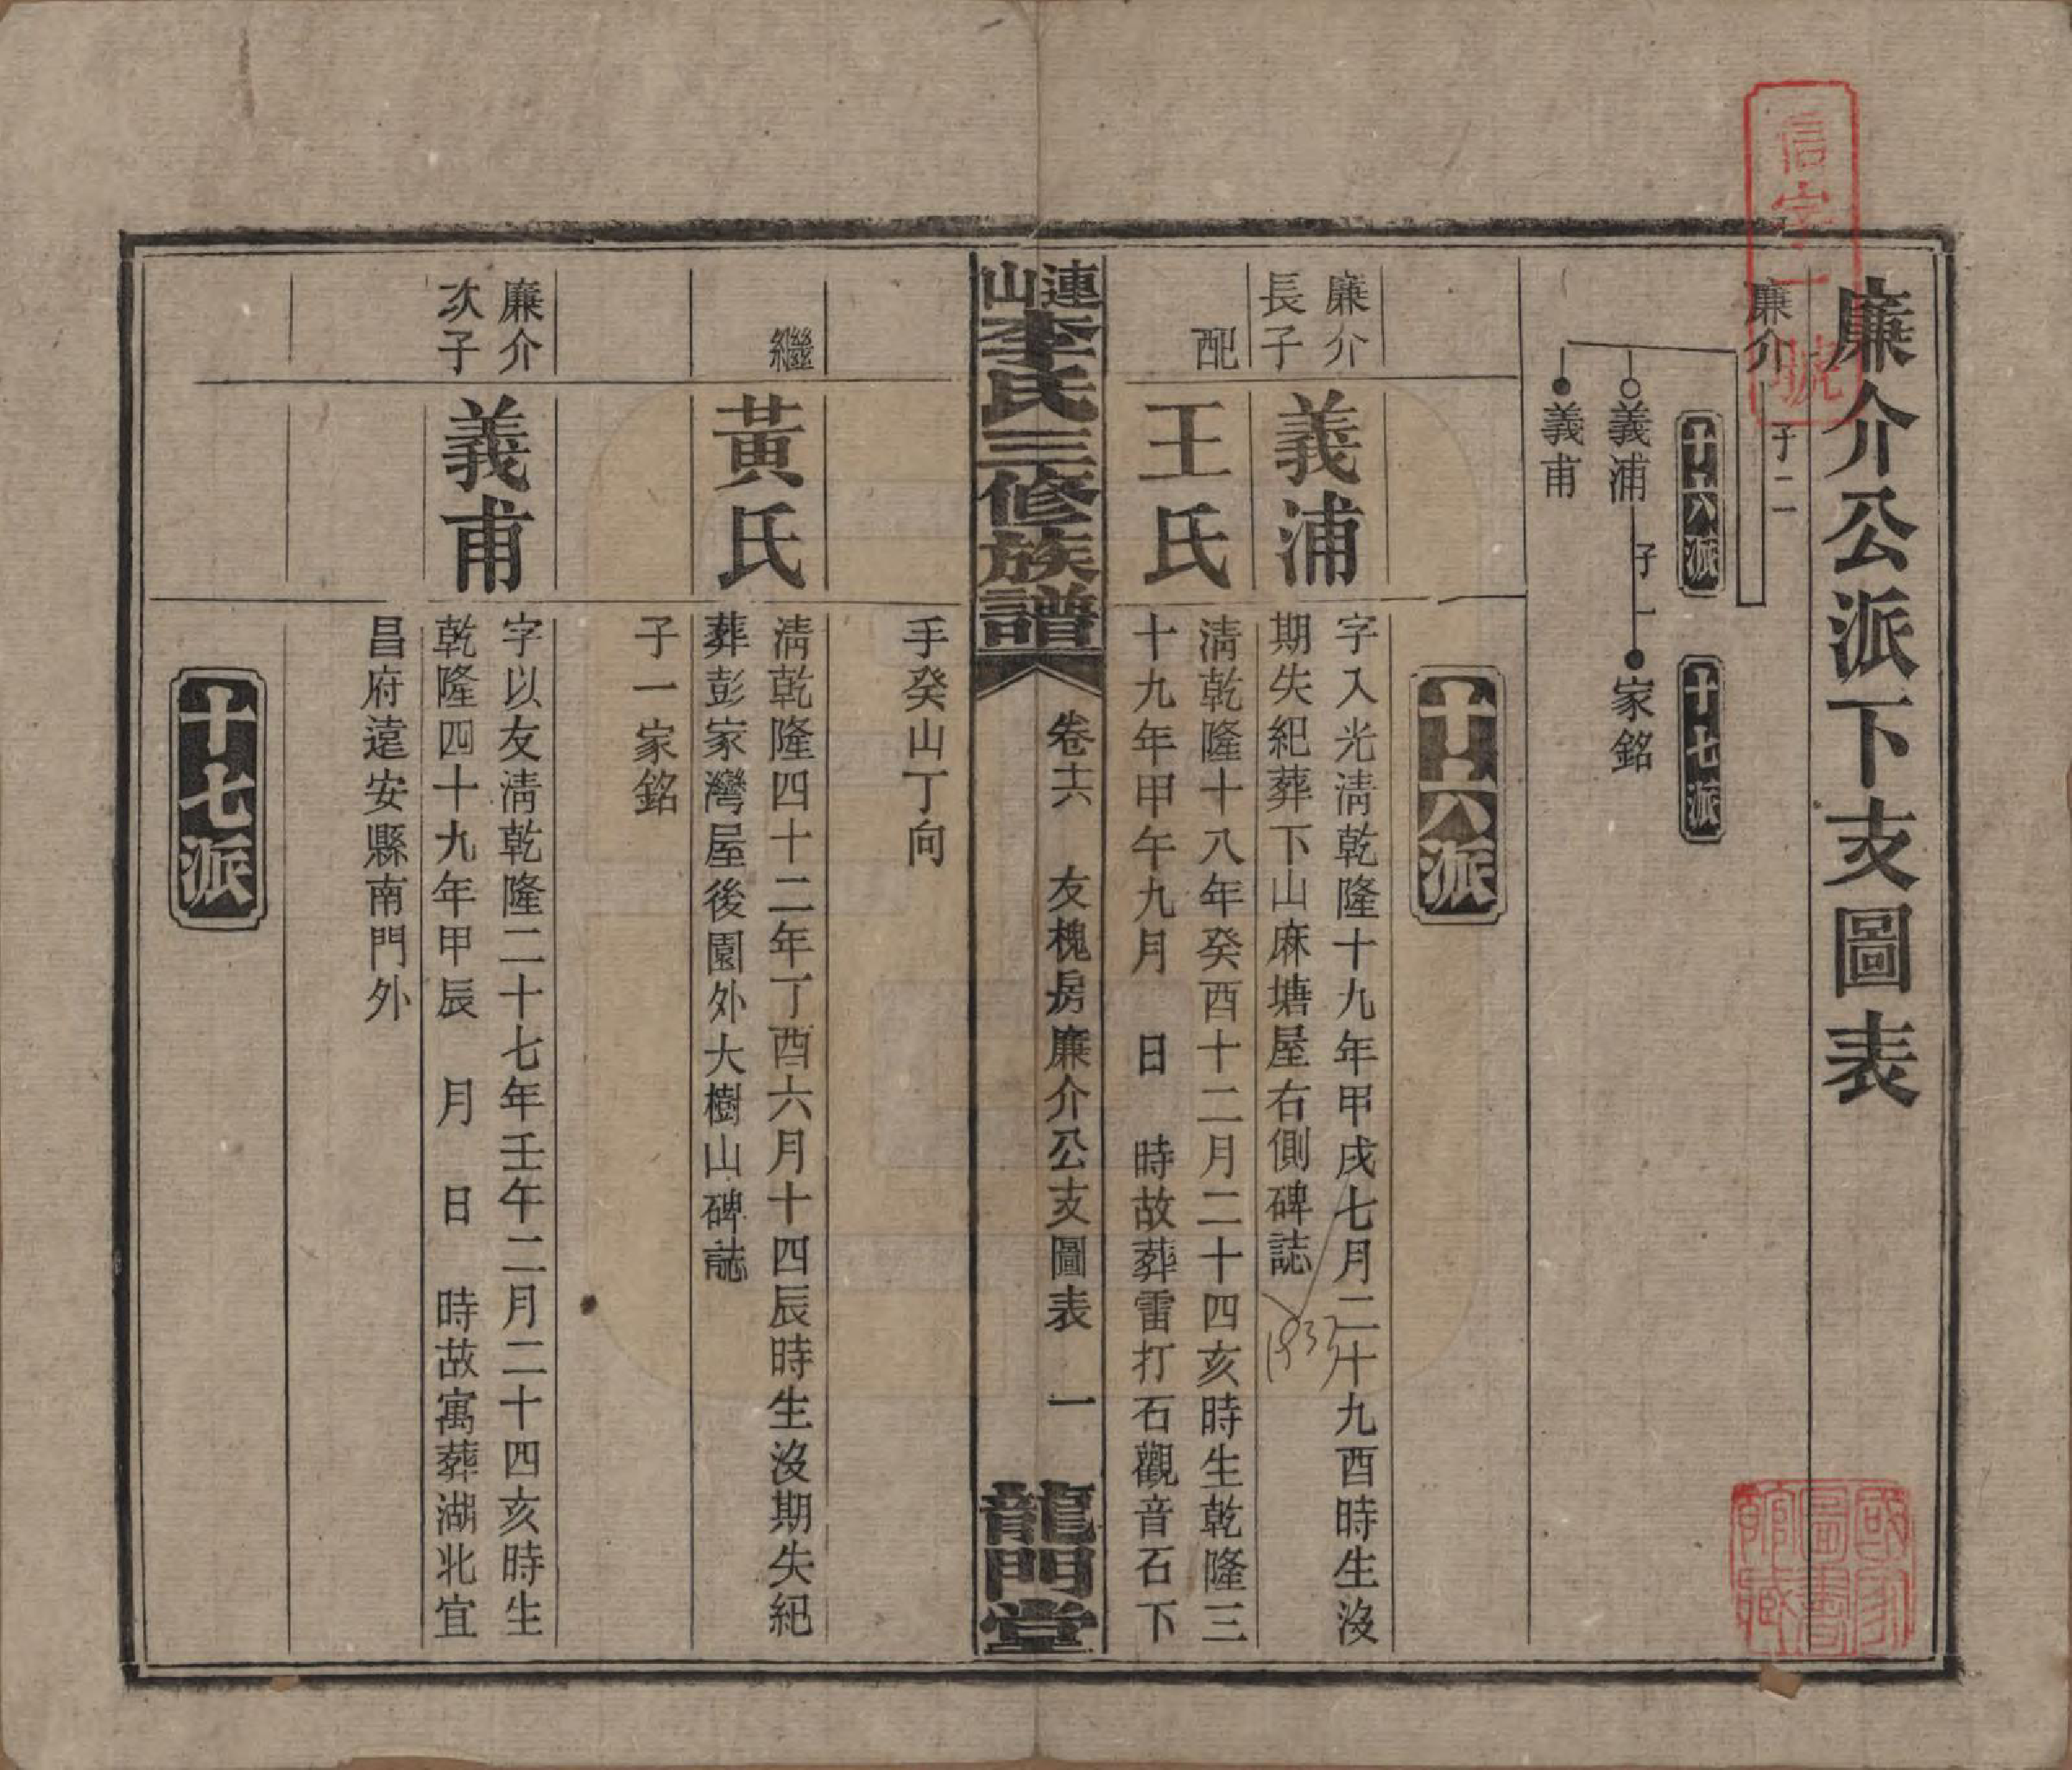 廉介公派下支圖表
信字一號
廉介 子二
十六派
十七派
義浦 子一 家銘
義甫
十六派
廉介
長子
義浦
字入光清乾隆十九年甲戌七月二十九酉時生沒
期失紀葬下山麻塘屋右側碑誌
1933
配
王氏
清乾隆十八年癸酉十二月二十四亥時生乾隆三
十九年甲午九月 日 時故葬雷打石觀音石下
連山李氏三修族譜
卷十六 友槐房廉介公支圖表 一
龍門堂
手癸山丁向
繼
黃氏
清乾隆四十二年丁酉六月十四辰時生沒期失紀
葬彭家灣屋後園外大樹山碑誌
子一家銘
廉介
次子
義甫
字以友清乾隆二十七年壬午二月二十四亥時生
乾隆四十九年甲辰 月 日 時故寓葬湖北宜
昌府遠安縣南門外
十七派
國家圖書館藏